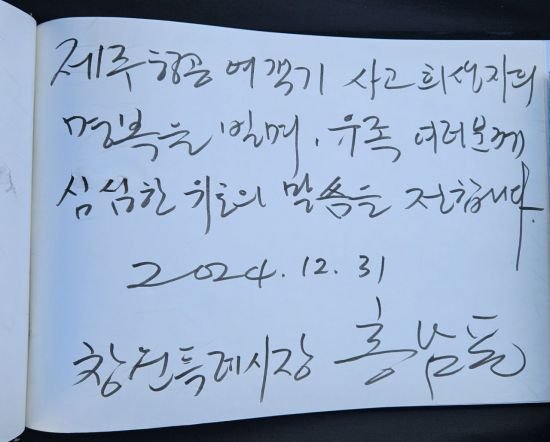 제주항공 여객기 사고 희생자의
명복을 빌며, 유족 여러분께
심심한 위로의 말씀을 전합니다.
2024. 12. 31
창원특례시장 홍남표